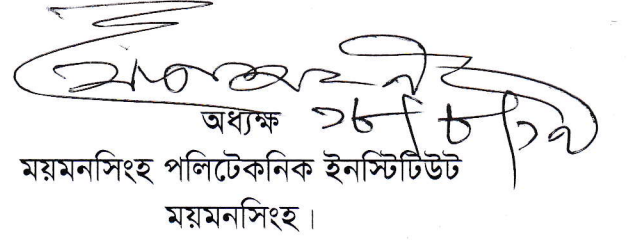 অধ্যক্ষ ১৮/৮/১৭
ময়মনসিংহ পলিটেকনিক ইনস্টিটিউট
ময়মনসিংহ।